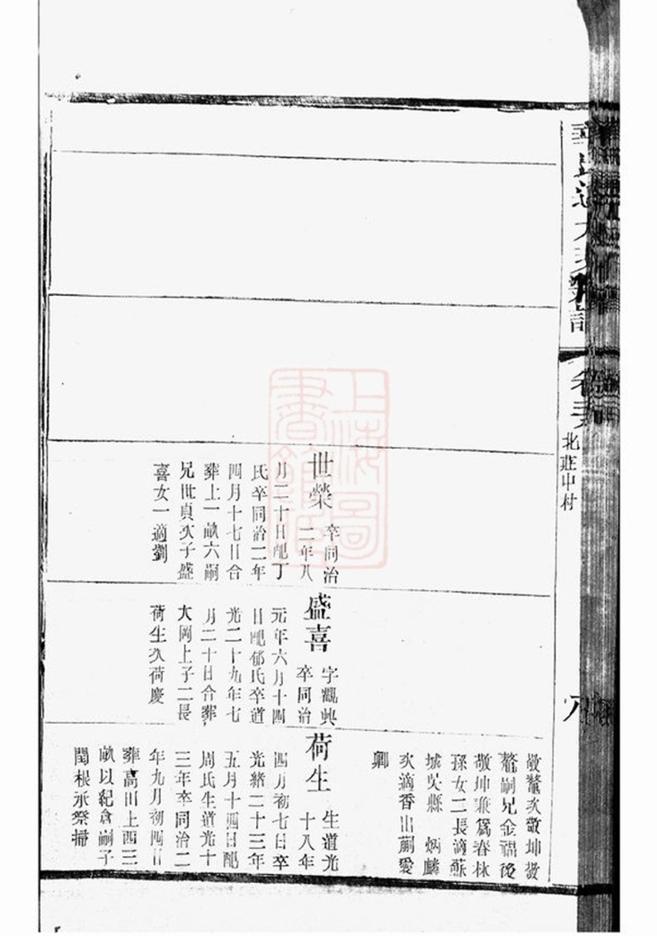 北莊中村
八
世榮
卒同治
二年八
月二十日配丁
氏卒同治二年
四月十七日合
葬上一畝六嗣
兄世貞次子盛
喜女一適劉
盛喜
字觀興
卒同治
元年六月十四
日配郁氏卒道
光二十九年七
月二十日合葬
大岡上子二長
荷生次荷慶
敬坤兼爲春林
孫女二長適蘇
城吳縣 炳麟
次適香山嗣愛
卿
荷生
生道光
十八年
四月初七日卒
光緒二十三年
五月十四日配
周氏生道光十
三年卒同治二
年九月初四日
葬高田上西三
畝以紀倉嗣子
閏根承祭掃
上海圖書館藏